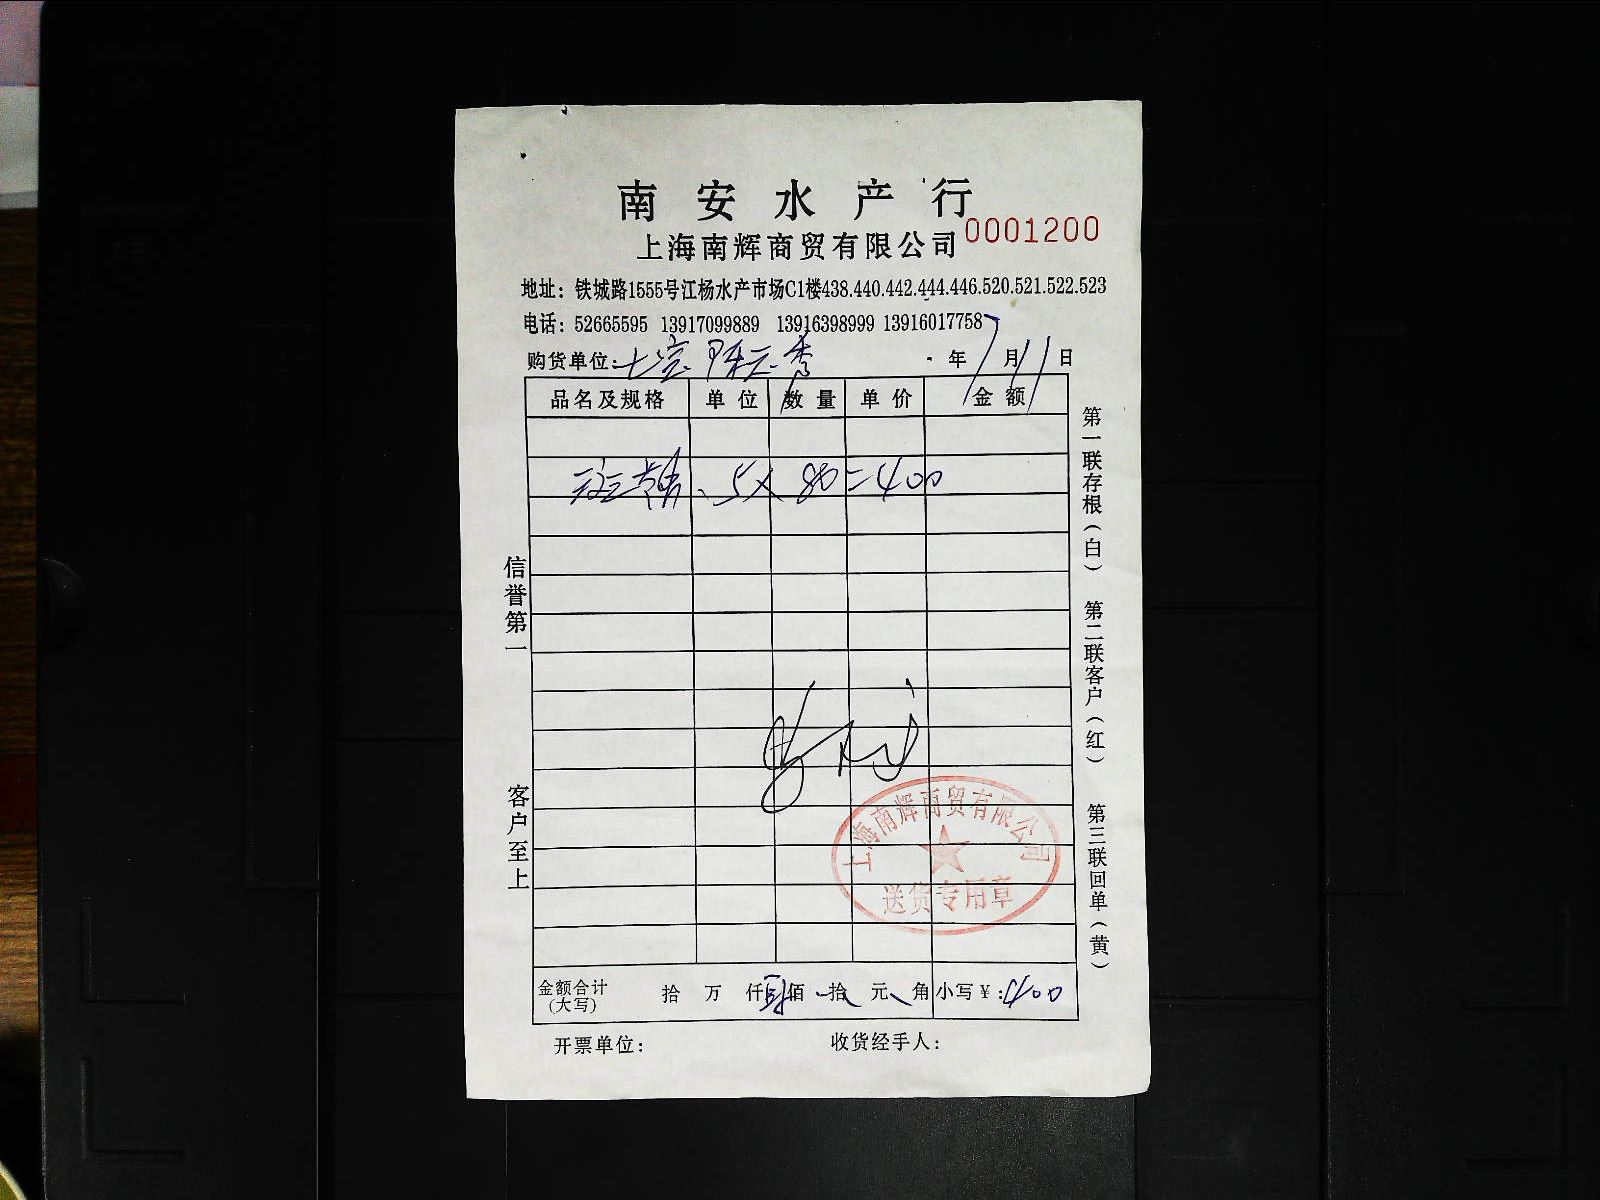 南安水产行
上海南辉商贸有限公司 0001200
地址：铁城路1555号江杨水产市场C1楼438.440.442.444.446.520.521.522.523
电话：52665595 13917099889 13916398999 13916017758
购货单位：七宝 年7月11日
品名及规格 单位 数量 单价 金额
5×80=400
信誉第一
客户至上
第一联存根（白） 第二联客户（红） 第三联回单（黄）
上海南辉商贸有限公司
送货专用章
金额合计 拾 万 仟 肆佰 拾 元 角 小写￥：400
（大写）
开票单位： 收货经手人：